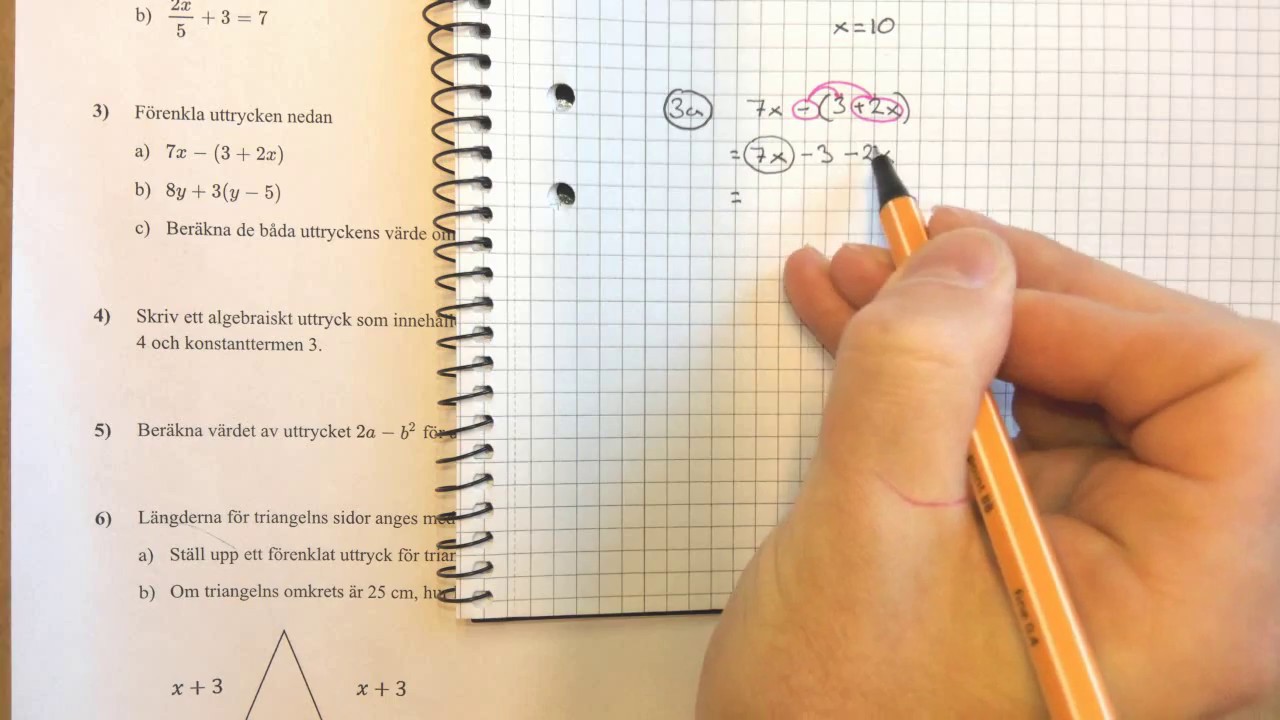 b) 2x/5 + 3 = 7
3) Förenkla uttrycken nedan
a) 7x − (3 + 2x)
b) 8y + 3(y − 5)
c) Beräkna de båda uttryckens värde
4) Skriv ett algebraiskt uttryck som
4 och konstanttermen 3.
5) Beräkna värdet av uttrycket 2a − b² för
6) Längderna för triangelns sidor anges
a) Ställ upp ett förenklat uttryck för
b) Om triangelns omkrets är 25 cm,
x + 3
x + 3
x = 10
3a 7x − (3 + 2x)
= 7x − 3 − 2x
=